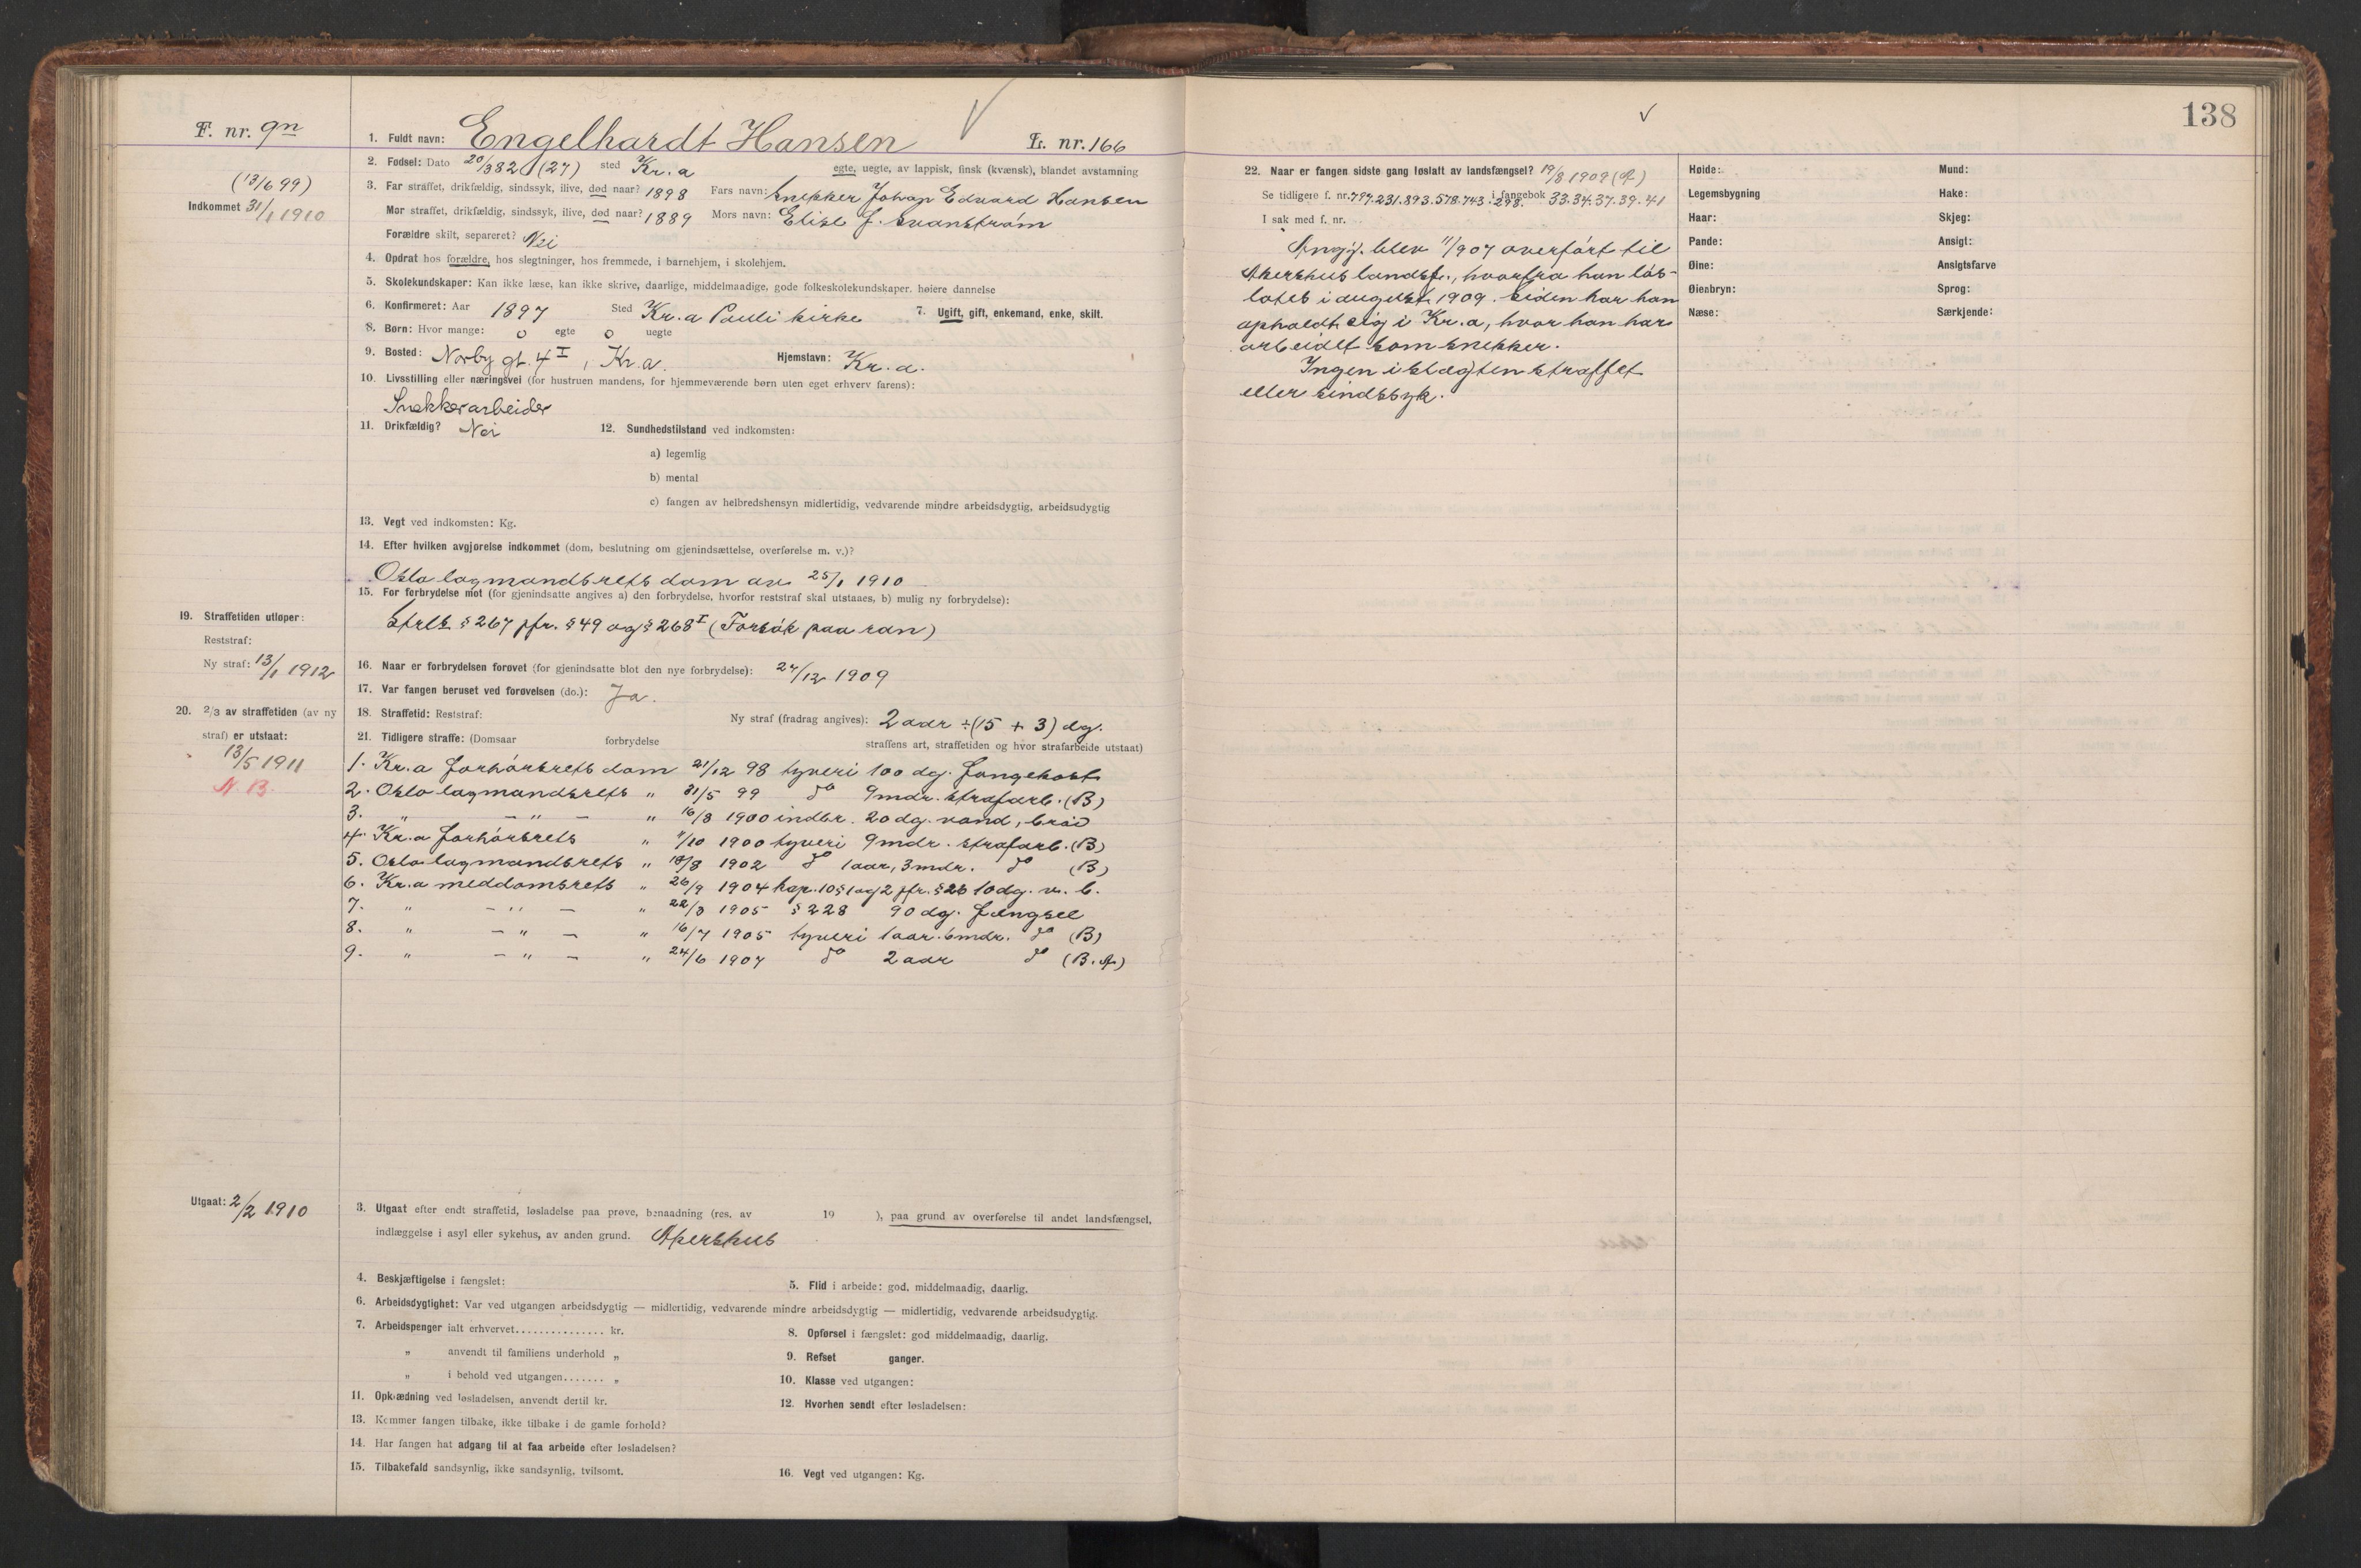 138
F. nr. 9n
1. Fuldt navn: Engelhardt Hansen L. nr. 166
2. Fødsel: Dato 20/3 82 (27) sted Kr.a egte, uegte, av lappisk, finsk (kvænsk), blandet avstamning
(13/6 99)
Indkommet 31/1 1910
3. Far straffet, drikfældig, sindssyk, ilive, død naar? 1898 Fars navn: Snekker Johan Edvard Hansen
Mor straffet, drikfældig, sindssyk, ilive, død naar? 1889 Mors navn: Elise J. Svanstrøm
Forældre skilt, separeret? Nei
4. Opdrat hos forældre, hos slegtninger, hos fremmede, i barnehjem, i skolehjem.
5. Skolekundskaper: Kan ikke læse, kan ikke skrive, daarlige, middelmaadige, gode folkeskolekundskaper. høiere dannelse
6. Konfirmeret: Aar 1897 Sted Kr.a Pauli kirke 7. Ugift, gift, enkemand, enke, skilt.
8. Børn: Hvor mange: 0 egte 0 uegte
9. Bosted: Norby gt. 4 I, Kr.a. Hjemstavn: Kr.a.
10. Livsstilling eller næringsvei (for hustruen mandens, for hjemmeværende børn uten eget erhverv farens):
Snekkerarbeider
11. Drikfældig? Nei 12. Sundhedstilstand ved indkomsten:
a) legemlig
b) mental
c) fangen av helbredshensyn midlertidig, vedvarende mindre arbeidsdygtig, arbeidsudygtig
13. Vegt ved indkomsten: Kg.
14. Efter hvilken avgjørelse indkommet (dom, beslutning om gjenindsættelse, overførelse m. v.)?
Oslo lagmandsrets dom av 25/1 1910
15. For forbrydelse mot (for gjenindsatte angives a) den forbrydelse, hvorfor reststraf skal utstaaes, b) mulig ny forbrydelse):
Strls § 267 jfr. § 49 og § 268 I (Forsøk paa ran)
19. Straffetiden utløper:
Reststraf:
Ny straf: 13/1 1912
16. Naar er forbrydelsen forøvet (for gjenindsatte blot den nye forbrydelse): 27/12 1909
17. Var fangen beruset ved forøvelsen (do.): Ja.
20. 2/3 av straffetiden (av ny
straf) er utstaat:
13/5 1911
N.B.
18. Straffetid: Reststraf: Ny straf (fradrag angives): 2 aar ÷ (15 + 3) dg.
21. Tidligere straffe: (Domsaar forbrydelse straffens art, straffetiden og hvor strafarbeide utstaat)
1. Kr.a Forhørsrets dom 21/12 98 tyveri 100 dg. Fangekost
2. Oslo lagmandsrets " 31/5 99 do 9 mdr. strafarb. (B)
3. " — " — " 16/3 1900 indbr. 20 dg. vand, brød
4. Kr.a Forhørsrets " 11/10 1900 tyveri 9 mdr. strafarb. (B)
5. Oslo lagmandsrets " 18/3 1902 do 1 aar, 3 mdr. do (B)
6. Kr.a meddomsrets " 26/9 1904 kap. 10 § 1 og 2 jfr. § 26 10 dg. v. b.
7. " — " — " 22/3 1905 § 228 90 dg. Fængsel
8. " — " — " 16/7 1905 tyveri 1 aar. 6 mdr. do (B)
9. " — " — " 24/6 1907 do 2 aar do (B. A.)
Utgaat: 2/2 1910
3. Utgaat efter endt straffetid, løsladelse paa prøve, benaadning (res. av 19 ), paa grund av overførelse til andet landsfængsel,
indlæggelse i asyl eller sykehus, av anden grund. Akershus
4. Beskjæftigelse i fængslet: 5. Flid i arbeide: god, middelmaadig, daarlig.
6. Arbeidsdygtighet: Var ved utgangen arbeidsdygtig — midlertidig, vedvarende mindre arbeidsdygtig — midlertidig, vedvarende arbeidsudygtig.
7. Arbeidspenger ialt erhvervet............... kr. 8. Opførsel i fængslet: god middelmaadig, daarlig.
„ anvendt til familiens underhold „ 9. Refset ganger.
„ i behold ved utgangen....... „ 10. Klasse ved utgangen:
11. Opklædning ved løsladelsen, anvendt dertil kr. 12. Hvorhen sendt efter løsladelsen:
13. Kommer fangen tilbake, ikke tilbake i de gamle forhold?
14. Har fangen hat adgang til at faa arbeide efter løsladelsen?
15. Tilbakefald sandsynlig, ikke sandsynlig, tvilsomt. 16. Vegt ved utgangen: Kg.
22. Naar er fangen sidste gang løslatt av landsfængsel? 19/8 1909 (A)
Se tidligere f. nr. 797. 231. 893. 578. 743. 298. i fangebok 33. 34. 37. 39. 41
I sak med f. nr.
Angj. blev 11/9 07 overført til
Akershus landsf., hvorfra han løs-
lates i august 1909. Siden har han
opholdt sig i Kr.a, hvor han har
arbeidet som snekker.
Ingen i slægten straffet
eller sindssyk.
Høide: Mund:
Legemsbygning Hake:
Haar: Skjeg:
Pande: Ansigt:
Øine: Ansigtsfarve
Øienbryn: Sprog:
Næse: Særkjende: